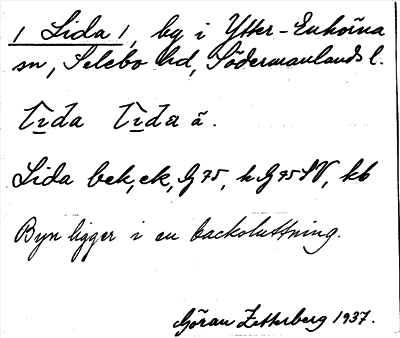 1 Lida 1, by i Ytter-Enhörna
sn, Selebo hd, Södermanlands l.
Lida bek, ek, G 75, h G 75 SV, kb
Byn ligger i en backsluttning.
Göran Zetterberg 1937.